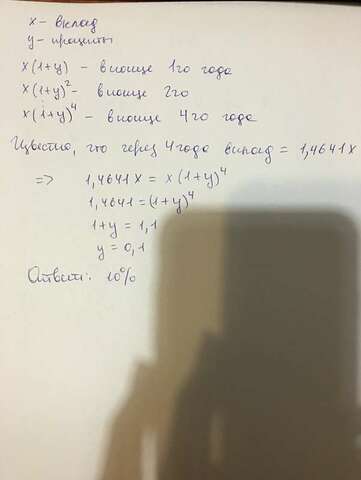 x – вклад
y – проценты
x(1+y) – в конце 1го года
x(1+y)² – в конце 2го
x(1+y)⁴ – в конце 4го года
Известно, что через 4 года вклад = 1,4641x
=> 1,4641x = x(1+y)⁴
1,4641 = (1+y)⁴
1+y = 1,1
y = 0,1
Ответ: 10%